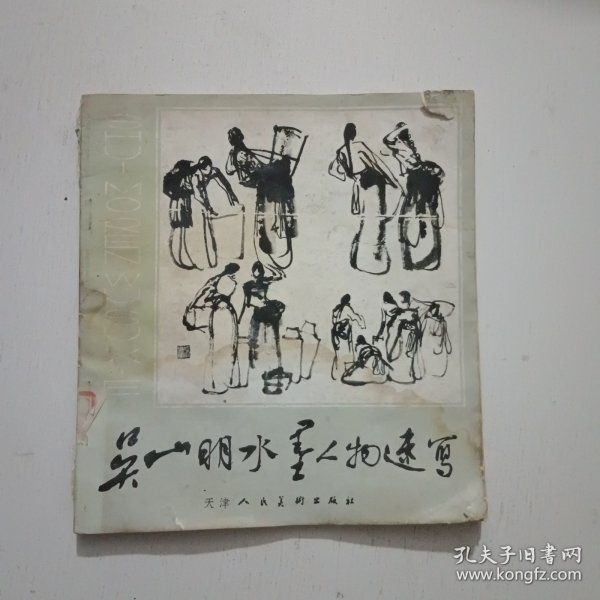 吴山明水墨人物速写
天津人民美术出版社
孔夫子旧书网
www.kongfz.com